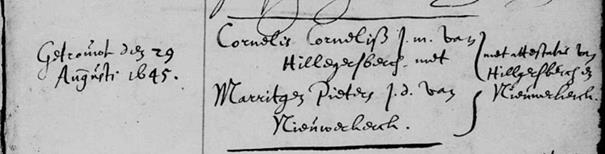 Getrouwt den 29
Augusti 1645.
Cornelis Cornelisz J.m. van
Hillegersberch met
Marritgen Pieters J.d. van
Nieuwerkerck.
met attestatie van
Hillgersberch en
Nieuwerkerck.